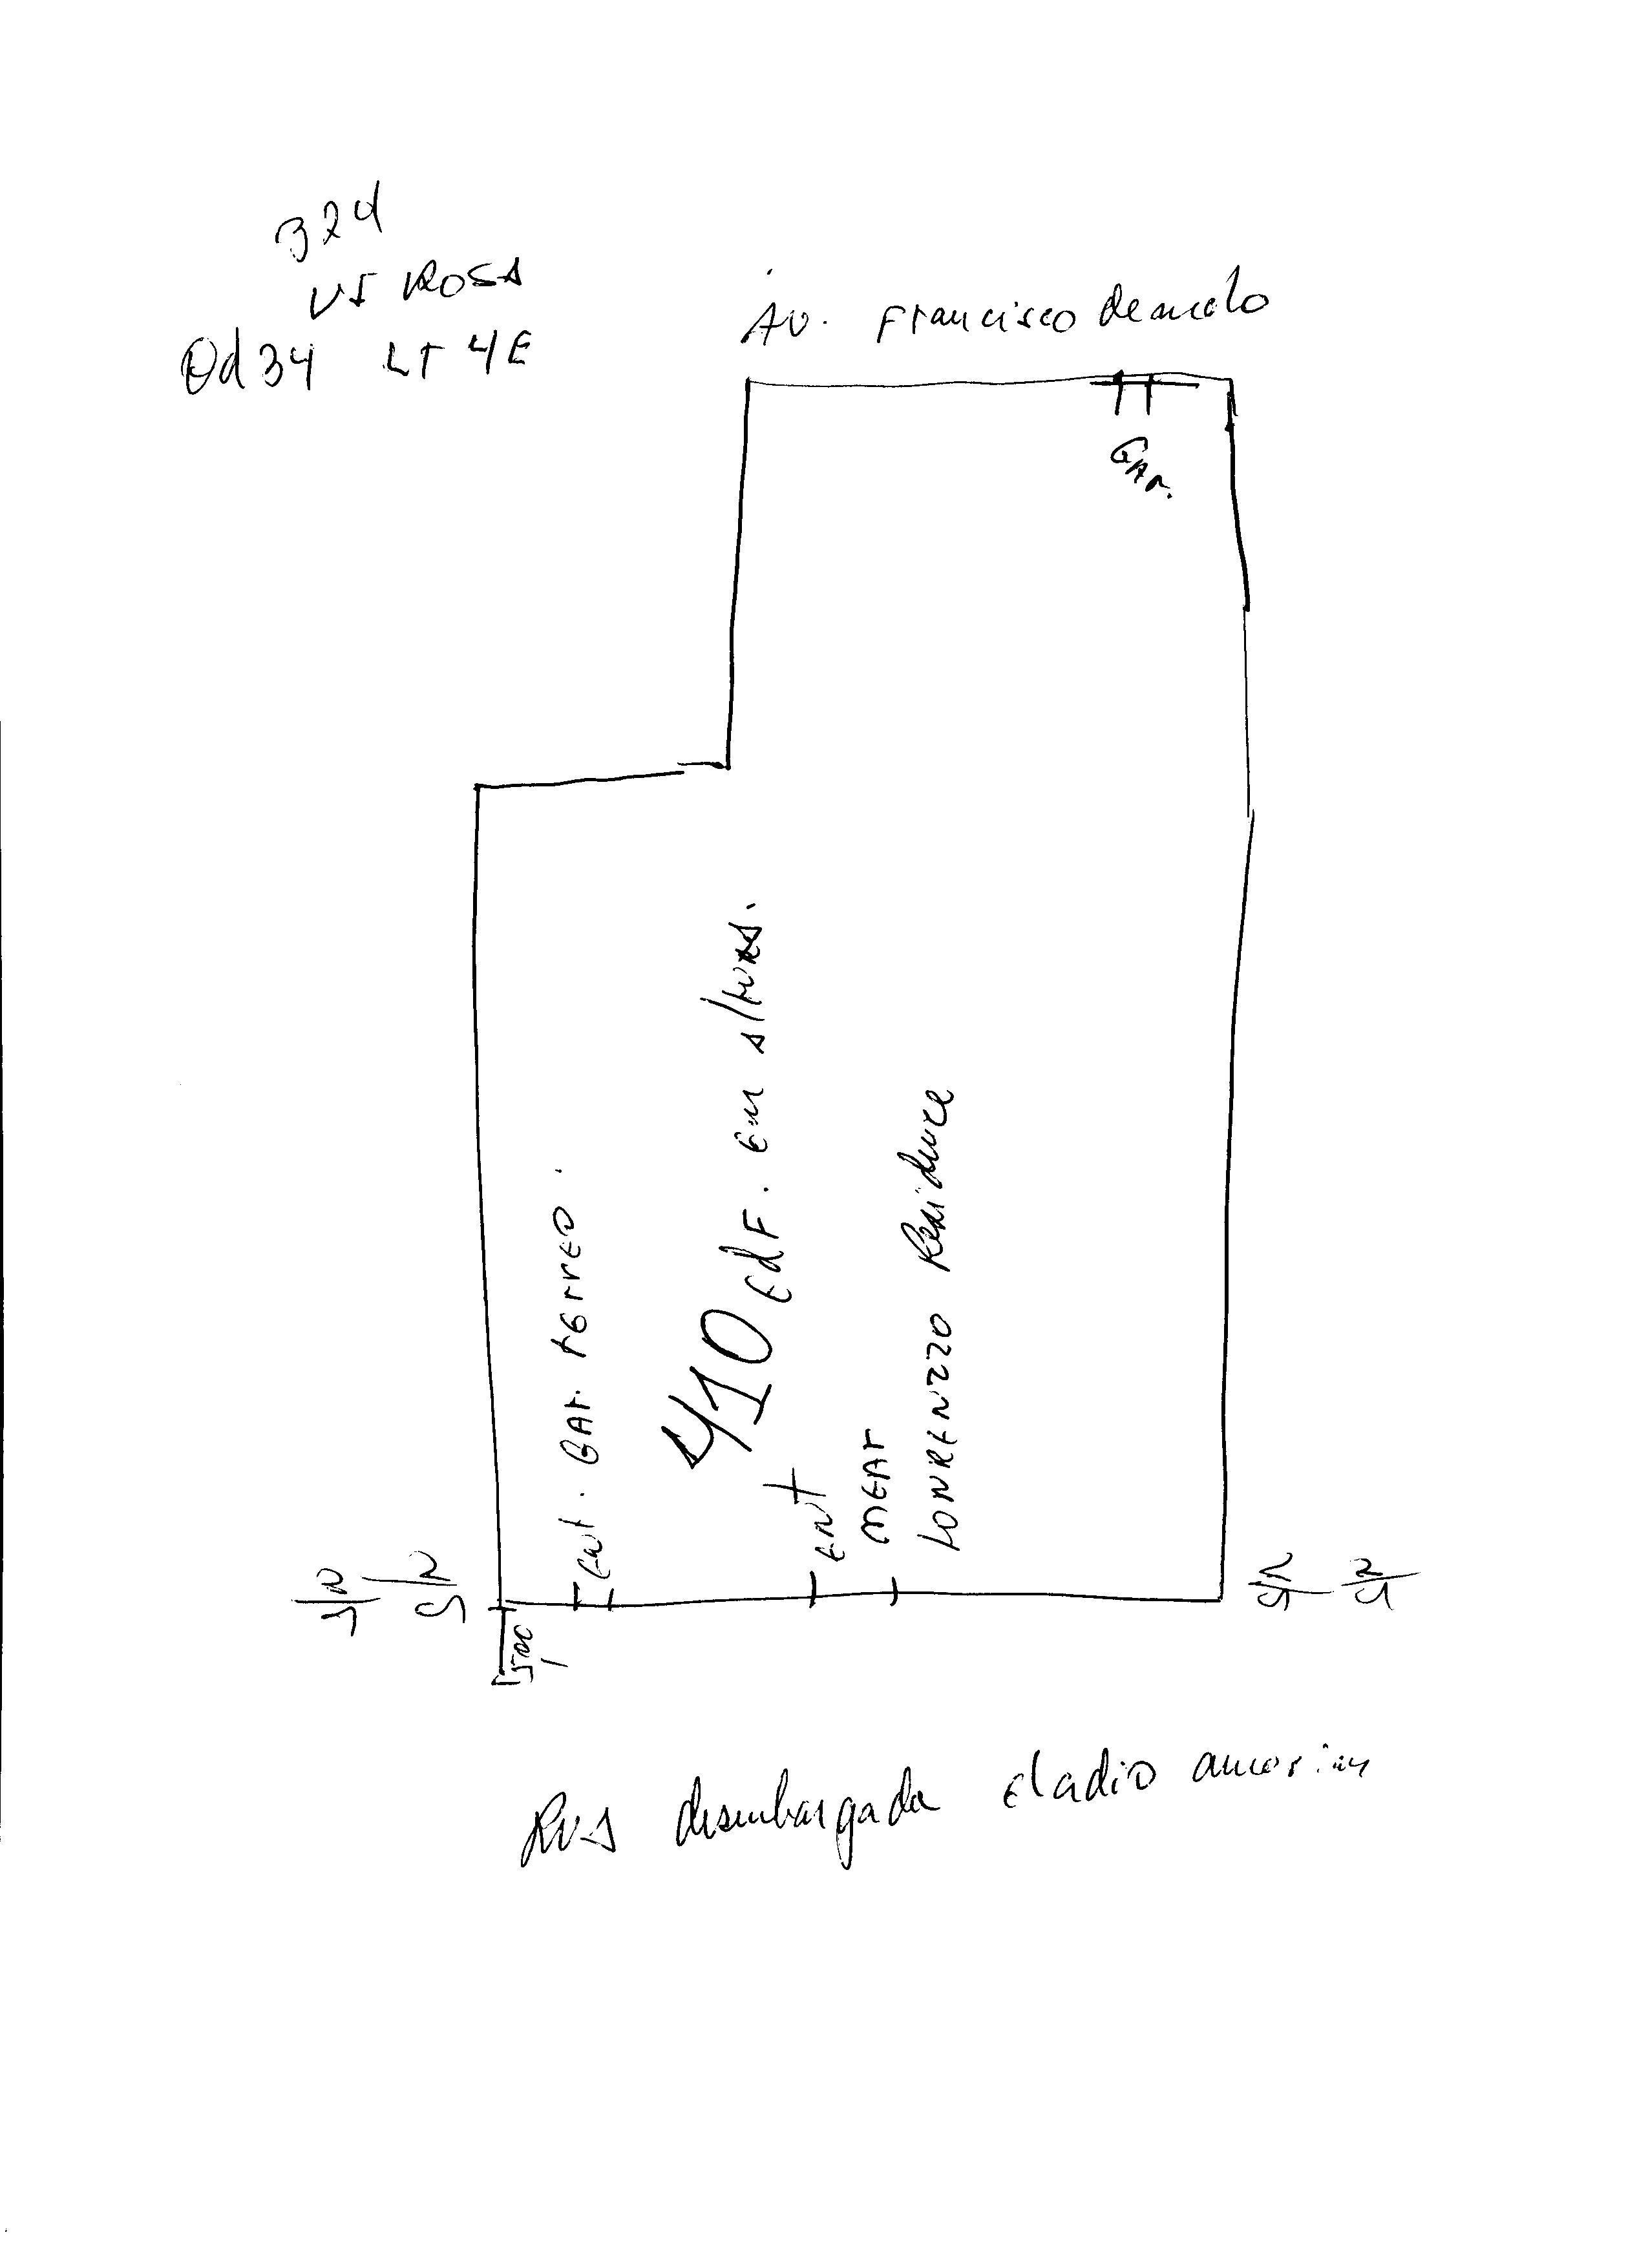 324
VS ROSA
Qd 34 LT 4E
Av. Francisco de melo
GAr.
Ent. GAr. terreo.
410 Edf. Em altura.
Ent
LORENZZO Residence
S/N
S/N
S/N
S/N
1500
Rua desembargada Eladio amorim